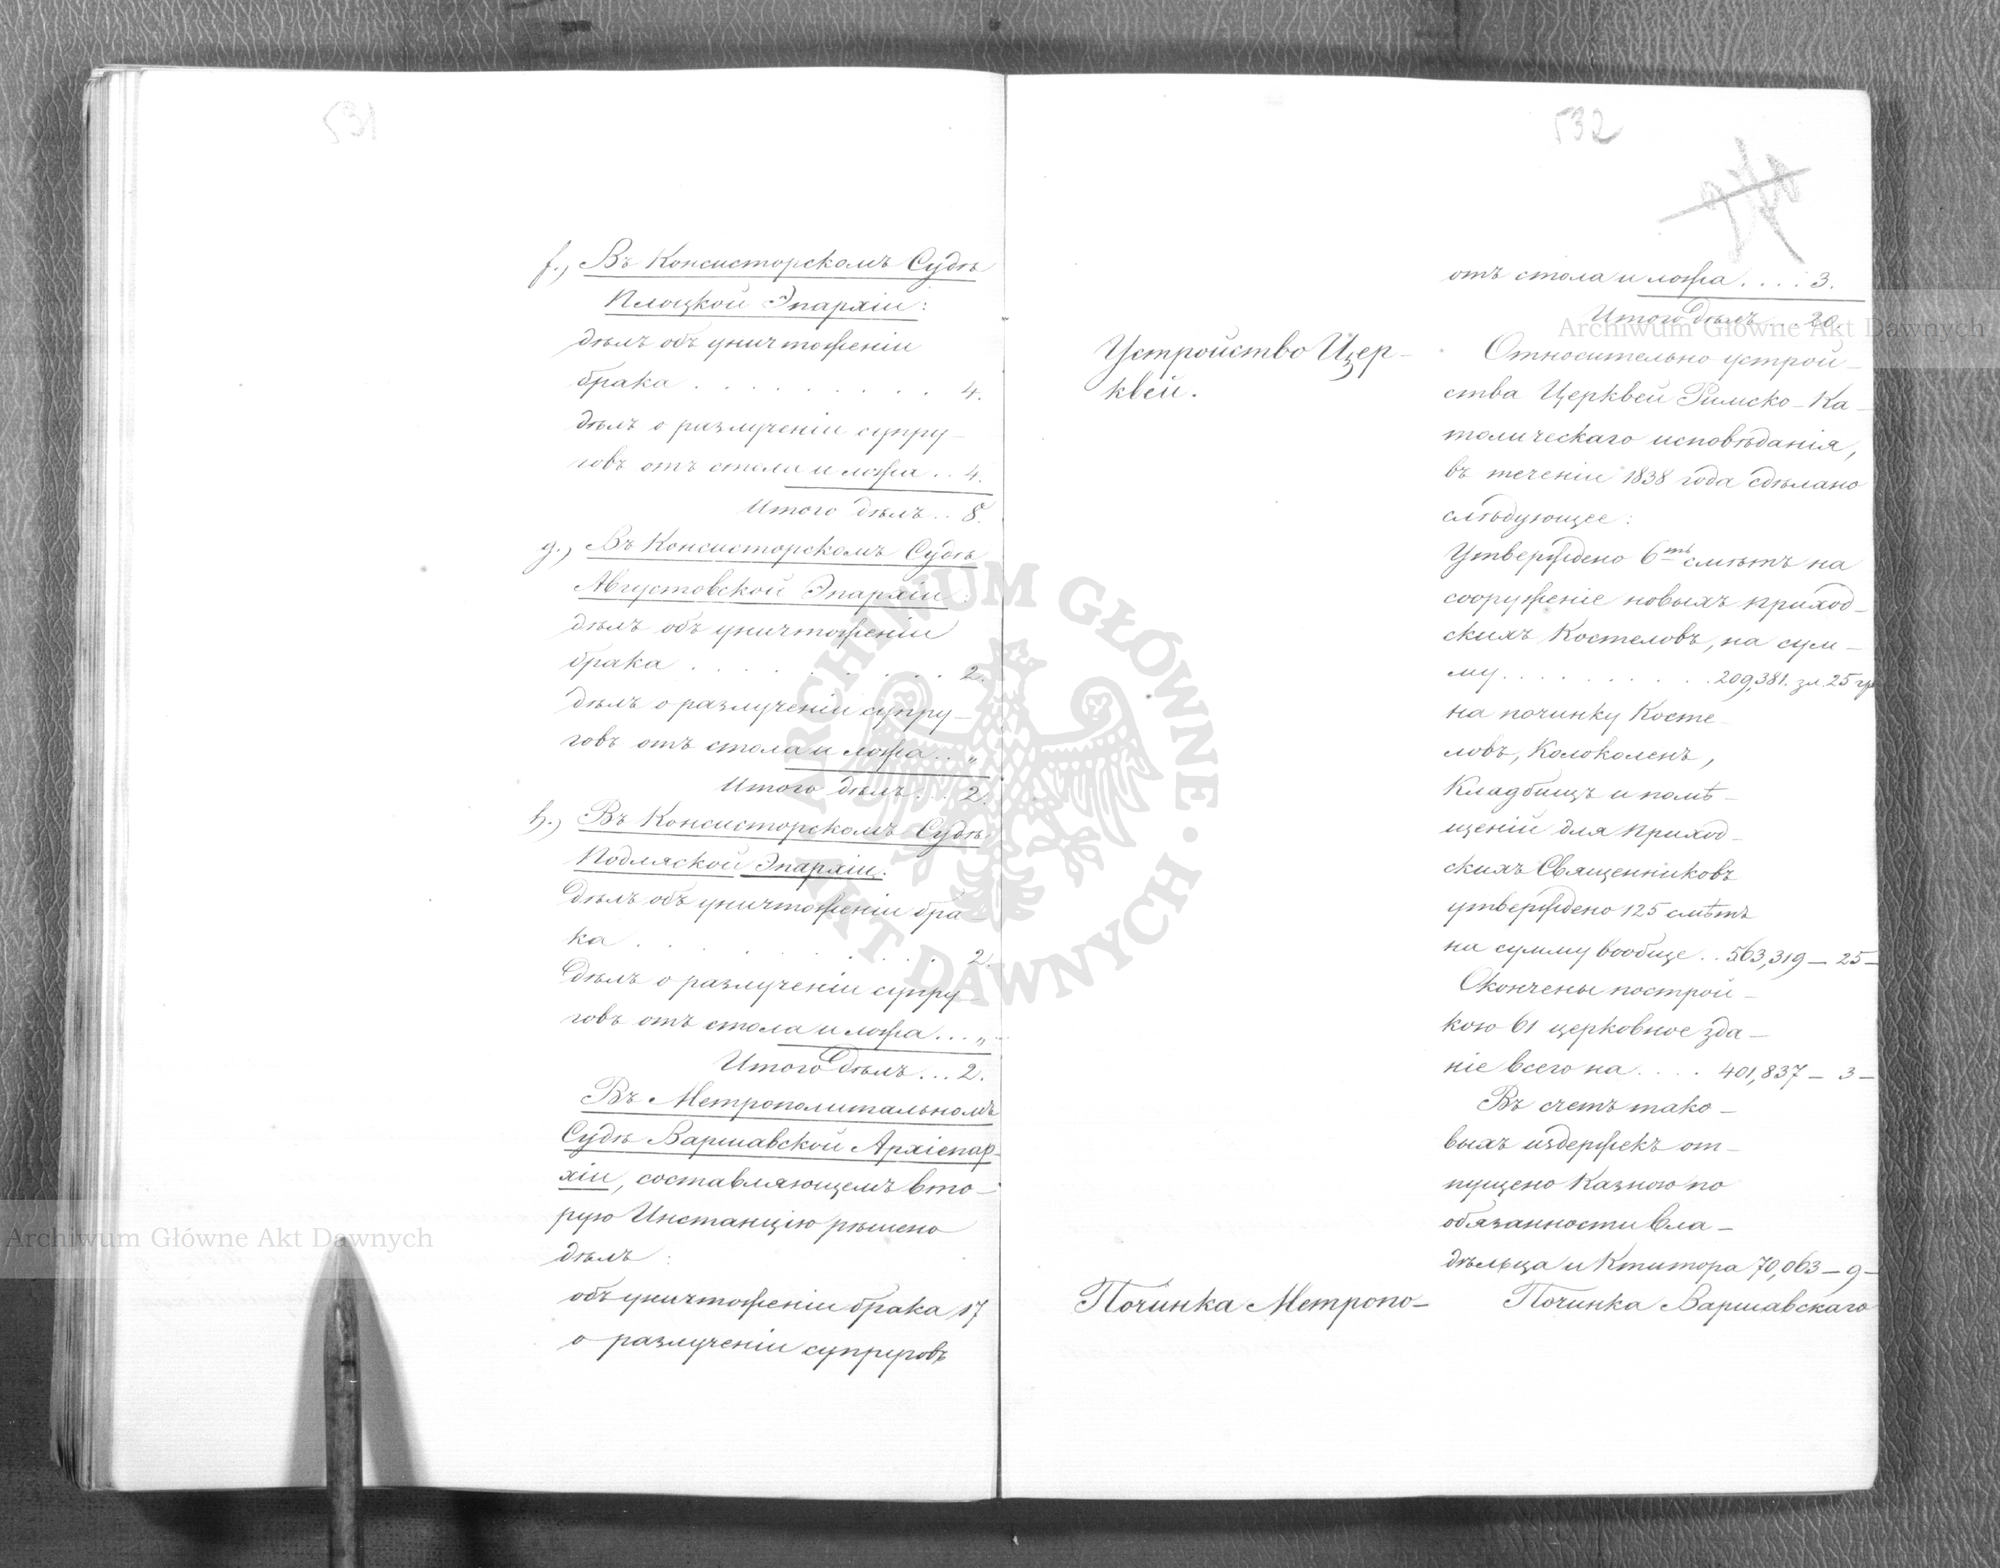 531
f.) Въ Консисторскомъ Судѣ
Плоцкой Эпархіи:
дѣлъ объ уничтоженіи
брака . . . . . . . . . 4.
дѣлъ о разлученіи супру-
говъ отъ стола и ложа . . 4.
Итого дѣлъ . . 8.
g.) Въ Консисторскомъ Судѣ
Августовской Эпархіи:
дѣлъ объ уничтоженіи
брака . . . . . . . . . 2.
дѣлъ о разлученіи супру-
говъ отъ стола и ложа . . „
Итого дѣлъ . . . 2.
h.) Въ Консисторскомъ Судѣ
Подляской Эпархіи.
Дѣлъ объ уничтоженіи бра-
ка . . . . . . . . . 2.
Дѣлъ о разлученіи супру-
говъ отъ стола и ложа . . . „
Итого Дѣлъ . . . 2.
Въ Метрополитальномъ
Судѣ Варшавской Архіепар-
хіи, составляющемъ вто-
рую Инстанцію рѣшено
дѣлъ:
объ уничтоженіи брака 17
о разлученіи супруговъ
532
отъ стола и ложа . . . . 3.
Итого Дѣлъ . . 20.
Устройство Цер-
квей.
Относительно устрой-
ства Церквей Римско-Ка-
толическаго исповѣданія,
въ теченіи 1838 года сдѣлано
слѣдующее:
Утверждено 6ть смѣтъ на
сооруженіе новыхъ приход-
скихъ Костеловъ, на сум-
му . . . . . . . . . . 209,381. зл. 25 гр
на починку Косте-
ловъ, Колоколенъ,
Кладбищъ и помѣ-
щеній для приход-
скихъ Священниковъ
утверждено 125 смѣтъ
на сумму вообще . . 563,319 — 25 —
Окончены построй-
кою 61 церковное зда-
ніе всего на . . . . 401,837 — 3 —
Въ счетъ тако-
выхъ издержекъ от-
пущено Казною по
обязанности Вла-
дѣльца и Ктитора 70,063 — 9 —
Починка Метропо-
Починка Варшавскаго
Archiwum Główne Akt Dawnych
Archiwum Główne Akt Dawnych
ARCHIWUM GŁÓWNE · AKT DAWNYCH ·